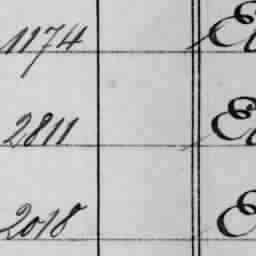 1174
2811
2018